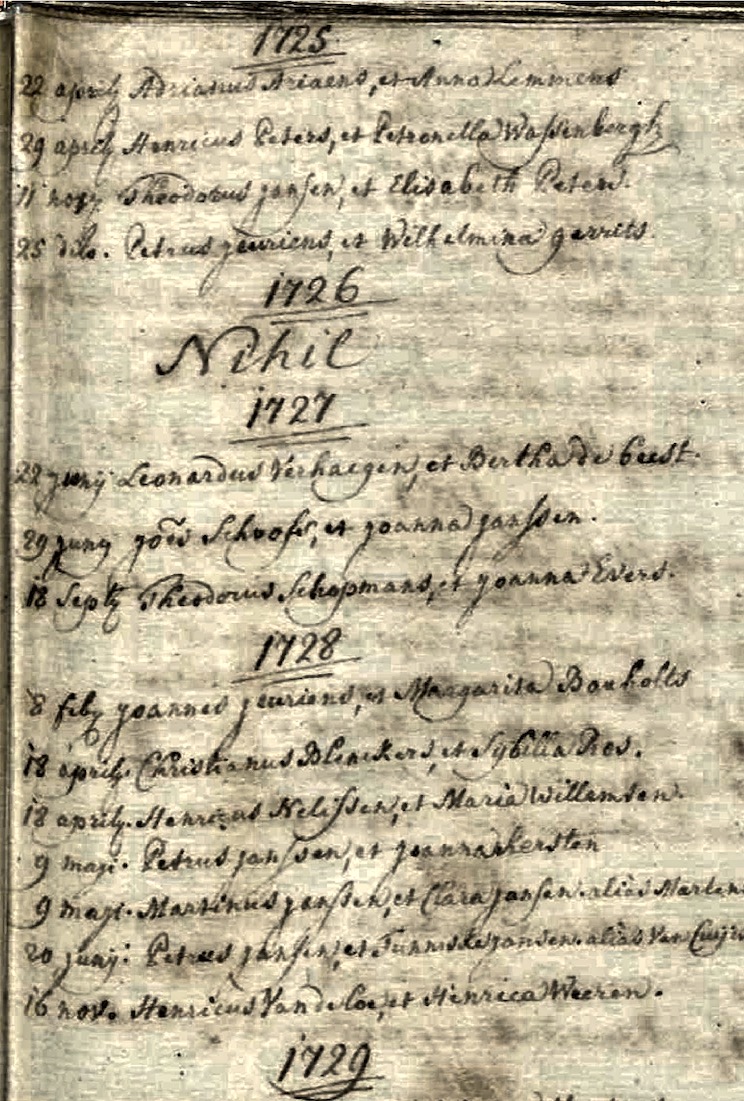 1725
22 aprilis Adrianus Ariaens, et Anna Lemmens
29 aprilis Henricus Peters, et Petronella Wassenbergh
11 Theodorus jansen, et Elisabeth Peters.
25 dito. Petrus jeuriens, et Wilhelmina gerrits.
1726
Nihil
1727
22 junij Leonardus Verhaegen, et Bertha de beest.
29 juny joēs Schoofs, et joanna janssen.
18 Septis Theodorus Schopmans, et joanna Evers.
1728
8 feb joannes jeuriens, et Margarita Bouholts
18 aprilis. Christianus Blenckers, et Sybilla Ros.
18 aprilis. Henricus Nelissen, et Maria Willemsen.
9 maji. Petrus janssen, et joanna kersten
9 maji. Martinus janssen, et Clara jansen. alias Marten
20 junij. Petrus jansen, et jansen. alias Van
16 nov. Henricus Van de Loe, et Henrica Weeren.
1729